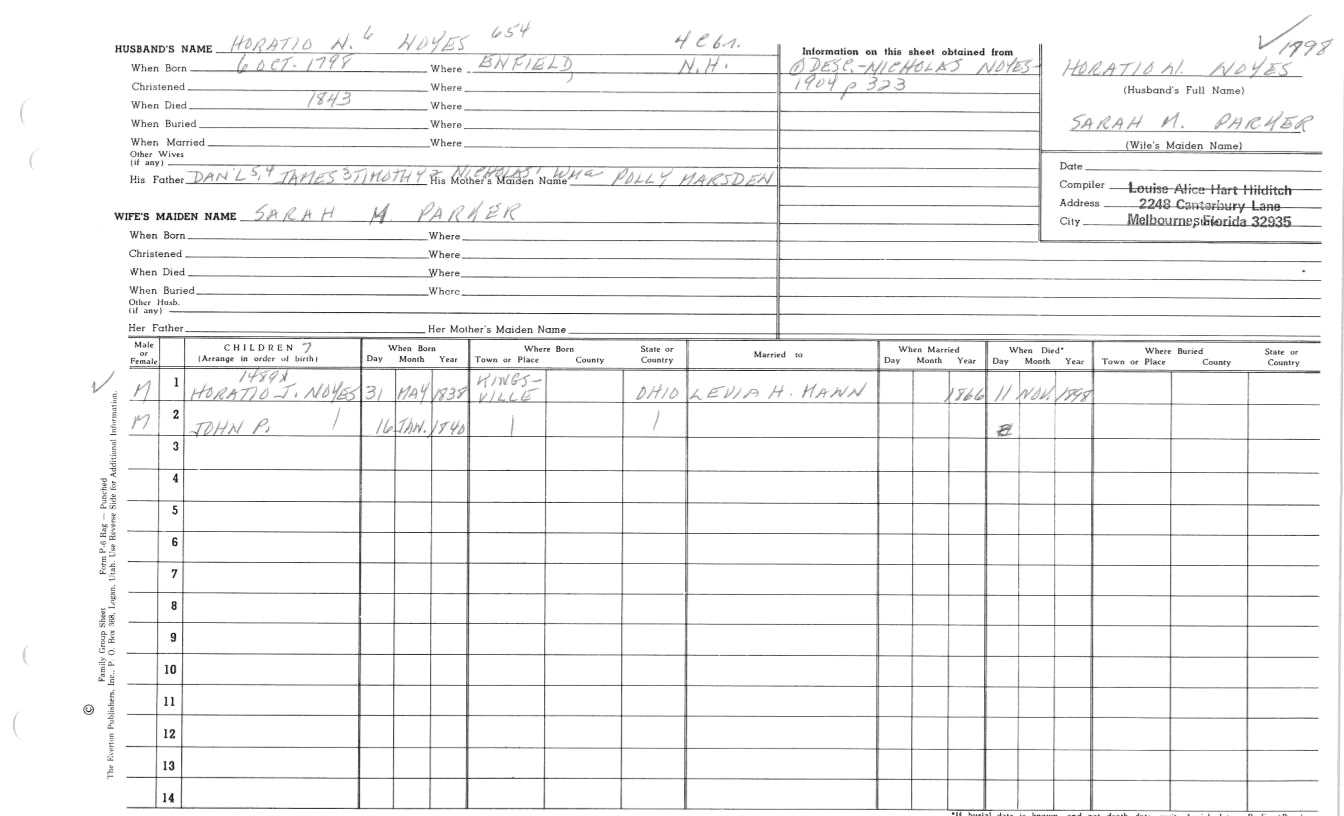 HUSBAND'S NAME HORATIO N. 6 NOYES 654 4 Cbn.
When Born 6 OCT. 1798 Where ENFIELD, N.H.
Christened Where
When Died 1843 Where
When Buried Where
When Married Where
Other Wives
(if any)
His Father DAN'L 5, 4 JAMES 3 TIMOTHY 2 NICHOLAS 1 Wm a His Mother's Maiden Name POLLY MARSDEN
WIFE'S MAIDEN NAME SARAH M PARKER
When Born Where
Christened Where
When Died Where
When Buried Where
Other Husb.
(if any)
Her Father Her Mother's Maiden Name
Information on this sheet obtained from
① DESC.-NICHOLAS NOYES-
1904 p 323
✓ 1798
HORATIO N. NOYES
(Husband's Full Name)
SARAH M. PARKER
(Wife's Maiden Name)
Date
Compiler Louise Alice Hart Hilditch
Address 2248 Canterbury Lane
City Melbourne, Florida 32935
Male or Female CHILDREN 7 (Arrange in order of birth) When Born Day Month Year Where Born Town or Place County State or Country Married to When Married Day Month Year When Died* Day Month Year Where Buried Town or Place County State or Country
✓ M 1 1489x HORATIO J. NOYES 31 MAY 1838 KINGS-VILLE OHIO LEVIA H. MANN 1866 11 NOV. 1898
M 2 JOHN P. 16 JAN. 1840
3
4
5
6
7
8
9
10
11
12
13
14
© Family Group Sheet Form P-6 Rag — Punched
The Everton Publishers, Inc., P. O. Box 368, Logan, Utah. Use Reverse Side for Additional Information.